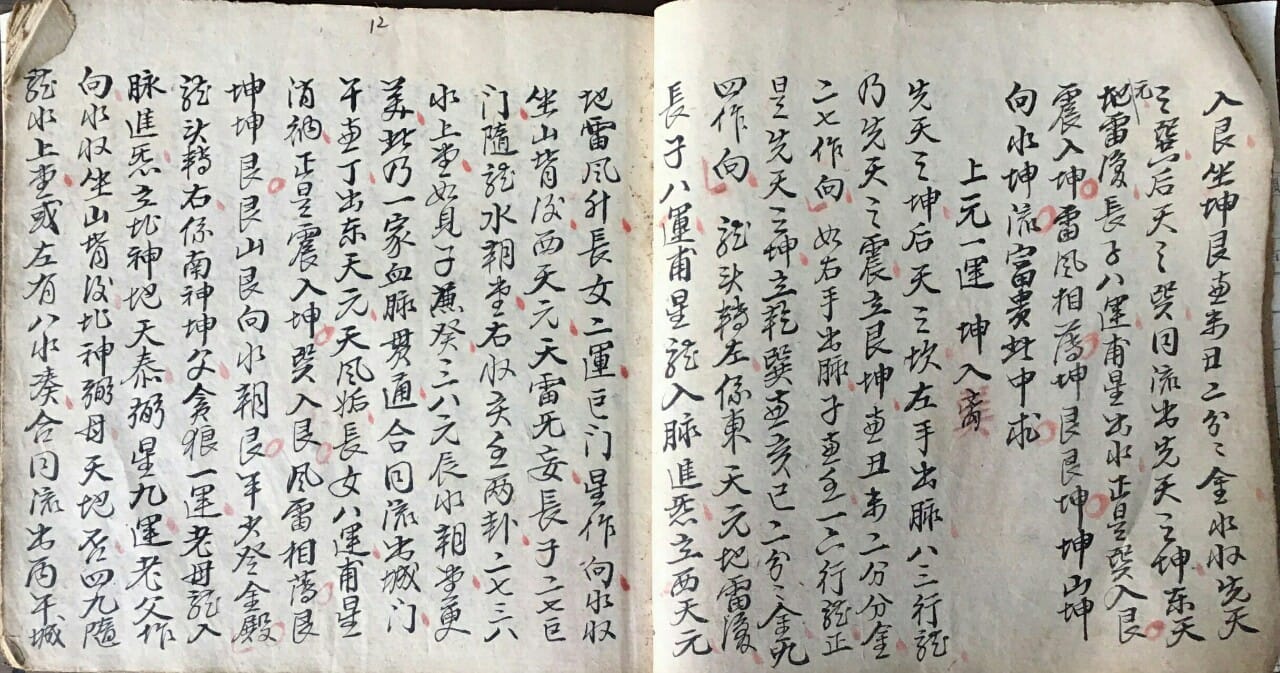 入艮坐坤艮兼未丑二分二金水收先天
之巽后天之巽同流出先天之坤东天
元
地雷復長子八運甫星出水正是巽入艮
震入坤雷風相薄坤艮艮坤坤山坤
向水坤流富贵此中求
上元一運 坤入
先天之坤后天之坎左手出脉八三行龍
乃先天之震立艮坤兼丑未二分分金
二七作向如右手出脉子兼壬一六行龍正
是先天之坤立乾巽兼亥巳二分之金九
四作向 龍头轉左係東天元地雷復
長子八運甫星龍入脉進炁立西天元
12
地雷風升長女二運巨门星作向水收
坐山背後西天元天雷无妄長子二七巨
门隨龍水朝堂右收亥壬两卦二七三八
水上堂如見子兼癸一六元辰水朝堂更
美此乃一家血脉貫通合同流出城门
午兼丁出东天元天風姤長女八運甫星
消納正是震入坤巽入艮風雷相薄艮
坤坤艮艮山艮向水朝艮年少登金殿
龍头轉右係南神坤父贪狼一運老母龍入
脉進炁立北神地天泰弼星九運老父作
向水收坐山背後北神弼母天地否四九隨
龍水上堂或左有八水凑合同流出丙午城